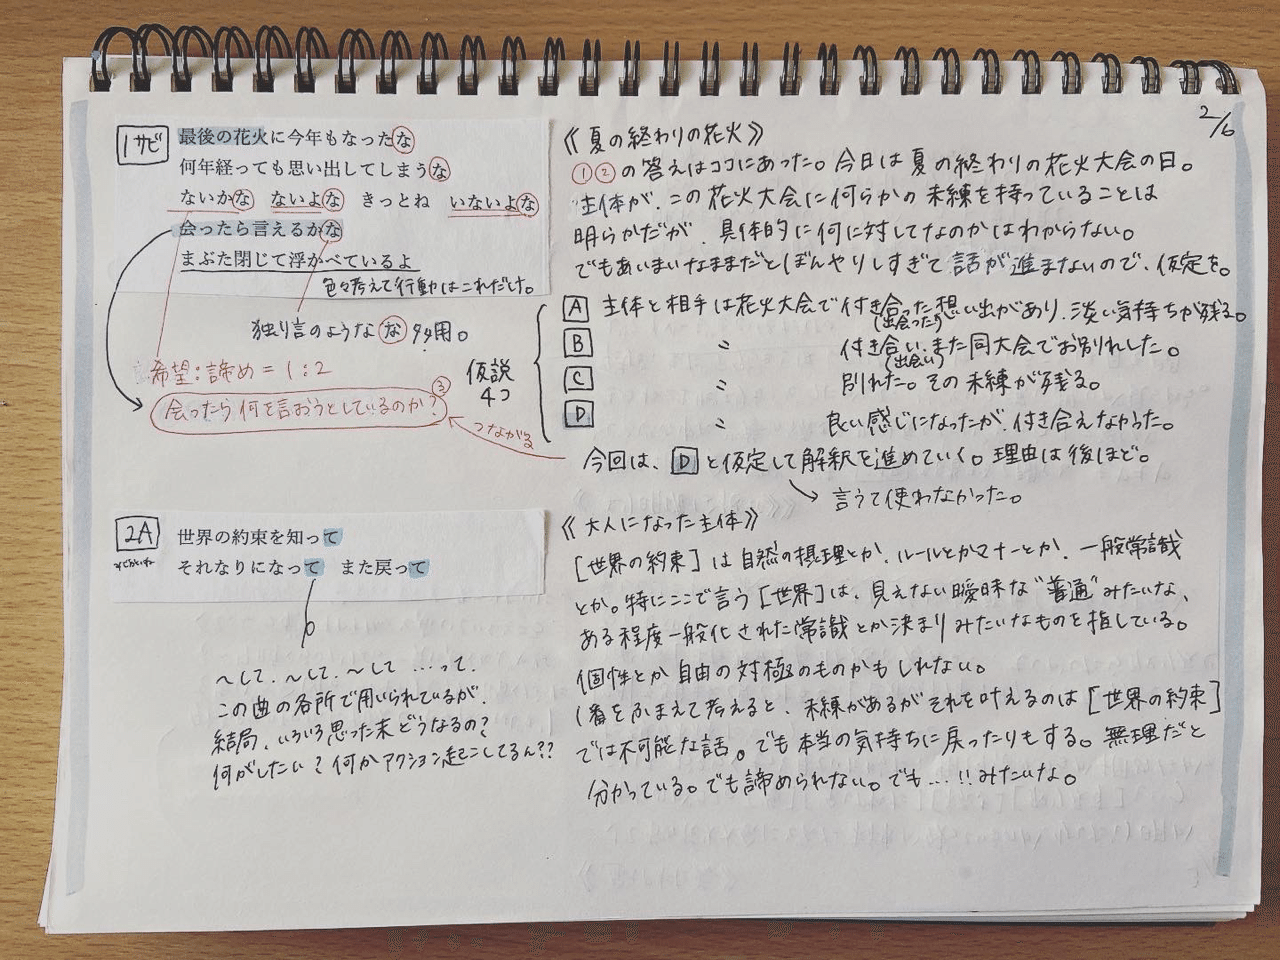 2/6
1サビ
最後の花火に今年もなったな
何年経っても思い出してしまうな
ないかな ないよな きっとね いないよな
会ったら言えるかな
まぶた閉じて浮かべているよ
色々考えて行動はこれだけ。
独り言のような な 多用。
希望:諦め=1:2
会ったら何を言おうとしているのか? ③
つながる
仮説
4つ
《夏の終わりの花火》
①②の答えはココにあった。今日は夏の終わりの花火大会の日。
主体が、この花火大会に何らかの未練を持っていることは
明らかだが、具体的に何に対してなのかはわからない。
でもあいまいなままだとぼんやりしすぎて話が進まないので、仮定を。
A 主体と相手は花火大会で付き合った想い出があり、淡い気持ちが残る。
(出会った)
B 〃 付き合い、また同大会でお別れした。
(出会い)
C 〃 別れた。その未練が残る。
D 〃 良い感じになったが、付き合えなかった。
今回は、Dと仮定して解釈を進めていく。理由は後ほど。
言うて使わなかった。
2A
世界の約束を知って
それなりになって また戻って
〜して、〜して、〜して …って、
この曲の各所で用いられているが、
結局、いろいろ思った末どうなるの?
何がしたい?何かアクション起こしてるん??
《大人になった主体》
[世界の約束]は自然の摂理とか、ルールとかマナーとか、一般常識
とか。特にここで言う[世界]は、見えない曖昧な"普通"みたいな、
ある程度一般化された常識とか決まりみたいなものを指している。
個性とか自由の対極のものかもしれない。
1番をふまえて考えると、未練があるがそれを叶えるのは[世界の約束]
では不可能な話。でも本当の気持ちに戻ったりもする。無理だと
分かっている。でも諦められない。でも…!!みたいな。